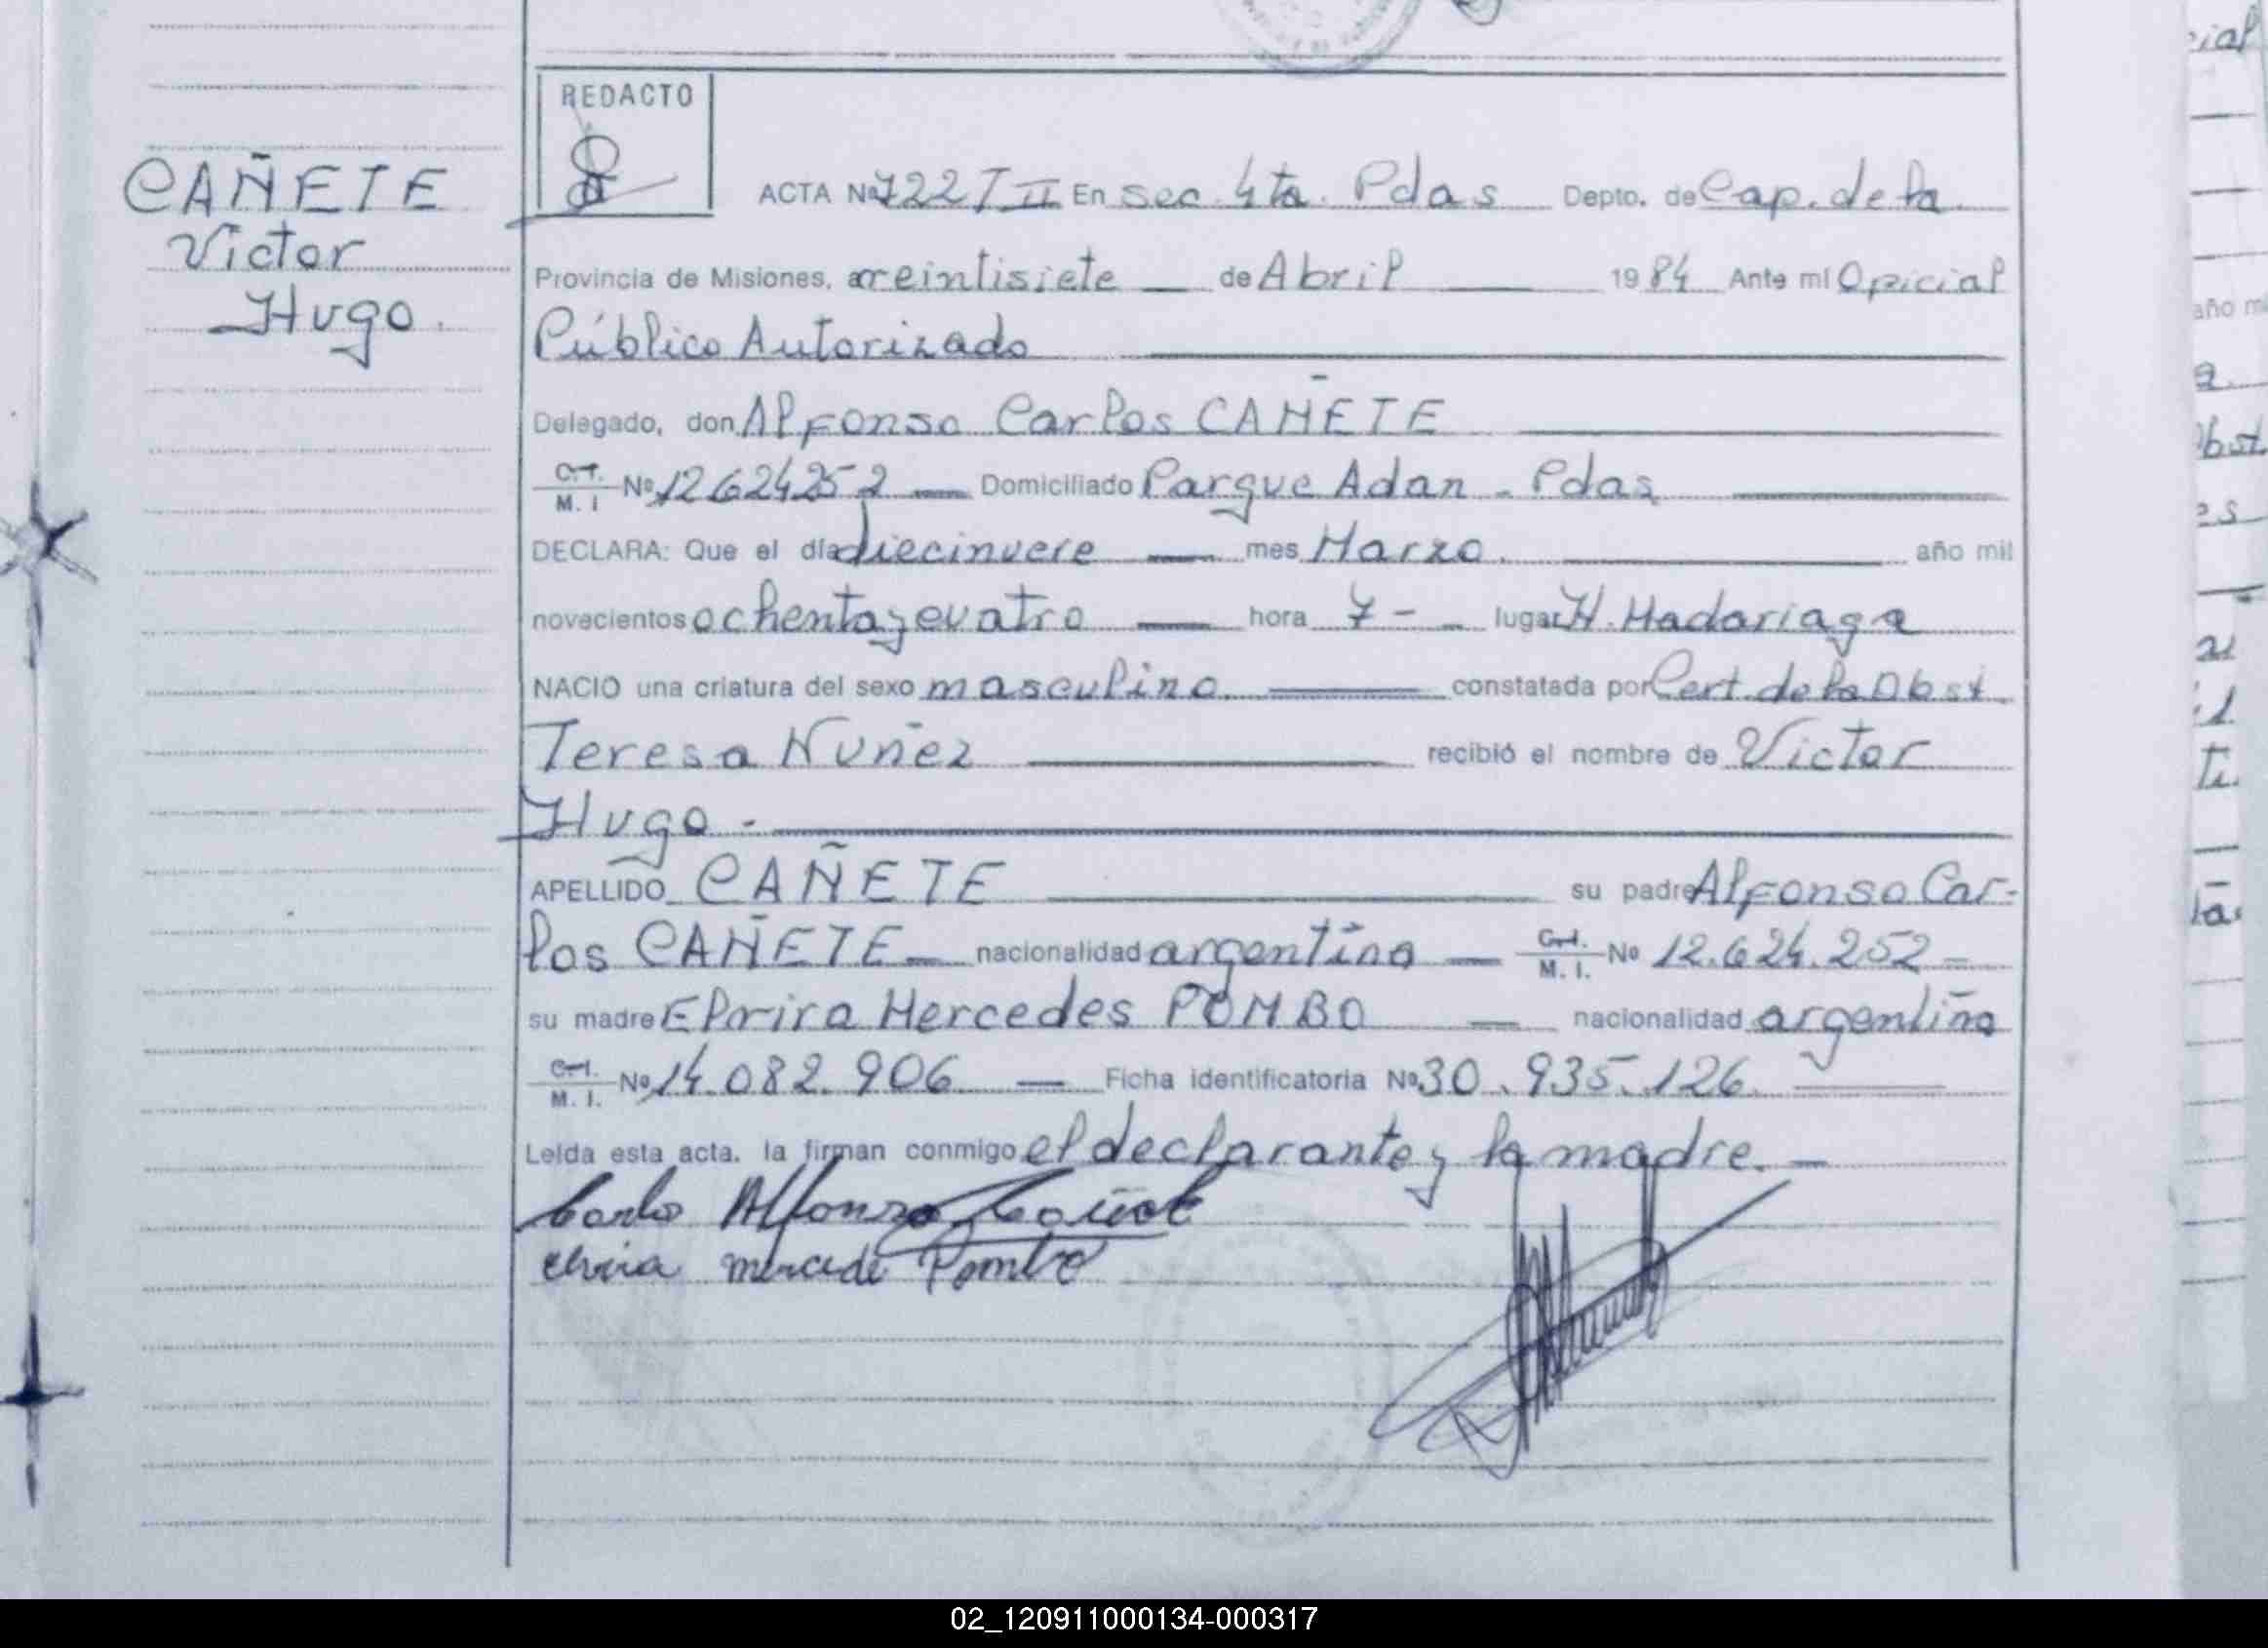 REDACTO
CAÑETE
Victor
Hugo.
ACTA Nº 722 T II En sec. 4ta. Pdas Depto. de Cap. de la
Provincia de Misiones, a veintisiete de Abril 1984 Ante mí Oficial
Público Autorizado
Delegado, don Alfonso Carlos CAÑETE
C.I. M. I Nº 12624252 Domiciliado Parque Adan - Pdas
DECLARA: Que el día diecinueve mes Marzo. año mil
novecientos ochenta y cuatro hora 7 - lugar H. Madariaga
NACIO una criatura del sexo masculino constatada por Cert. de la Obst.
Teresa Nuñez recibió el nombre de Victor
Hugo -
APELLIDO CAÑETE su padre Alfonso Car-
los CAÑETE nacionalidad argentina C.I. M. I. Nº 12.624.252 -
su madre Elvira Mercedes POMBO nacionalidad argentina
C.I. M. I. Nº 14.082.906 Ficha identificatoria Nº 30.935.126.
Leída esta acta. la firman conmigo el declarante y la madre.
Carlo Alfonzo Cañete
elvira mercede Pombo
02_120911000134-000317